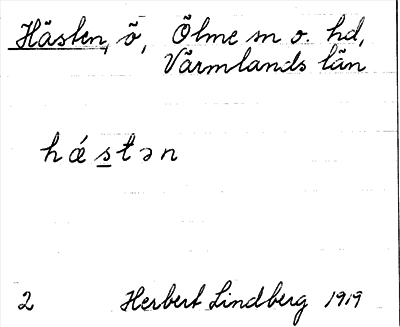 Hästen, ö, Ölme sn o. hd,
Värmlands län
hǽstən
2 Herbert Lindberg 1919